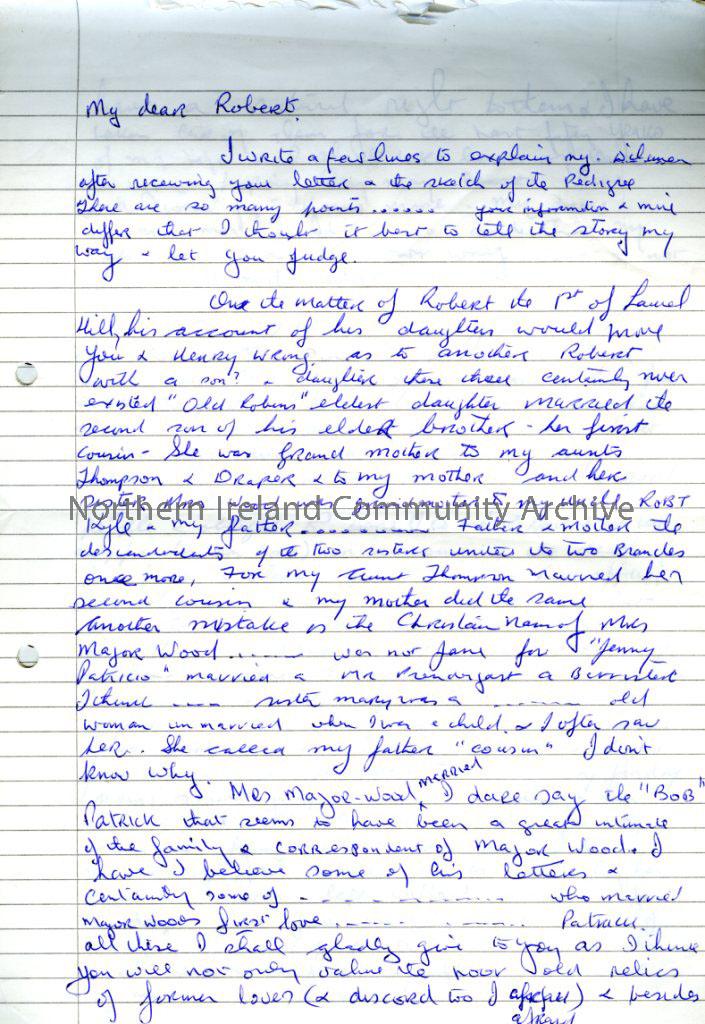 My dear Robert.
I write a few lines to explain my.
after receiving your letter & the sketch of the Pedigree
There are so many points...... your information & mine
differ that I thought it best to tell the story my
way & let you judge.
One the matter of Robert the 1st of Laurel
Hill, his account of his daughters would prove
you & Henry wrong as to another Robert
with a son? & daughter these three certainly never
existed "Old Robins" eldest daughter married the
second son of his eldest brother - her first
cousin - She was Grand mother to my aunts
Thompson & Draper & to my mother and her
sister Mrs Wood was grandmother to my uncle ROBT
Kyle & my father.......... Father & mother the
descendants of the two sisters united the two Branches
once more, For my Aunt Thompson married her
second cousin & my mother did the same
Another mistake is the Christian name of Mrs
Major Wood........ was not Jane for "Jenny
Patrick" married a Mr Prendergast a Barrister
I think .... sister mary was a ........ old
woman unmarried when I was a child. & I often saw
her. She called my father "cousin" I don't
know why.
Mrs Major-Wood married I dare say the "BOB"
Patrick that seems to have been a great intimate
of the family & correspondent of Major Wood. I
have I believe some of his letters &
certainly some of - - - - - - - - - - who married
Major Woods first love - - - - - - - - Patrick.
all these I shall gladly give to you as I think
you will not only value the poor old relics
of former loves (& discord too I afraid) & besides
afraid
Northern Ireland Community Archive